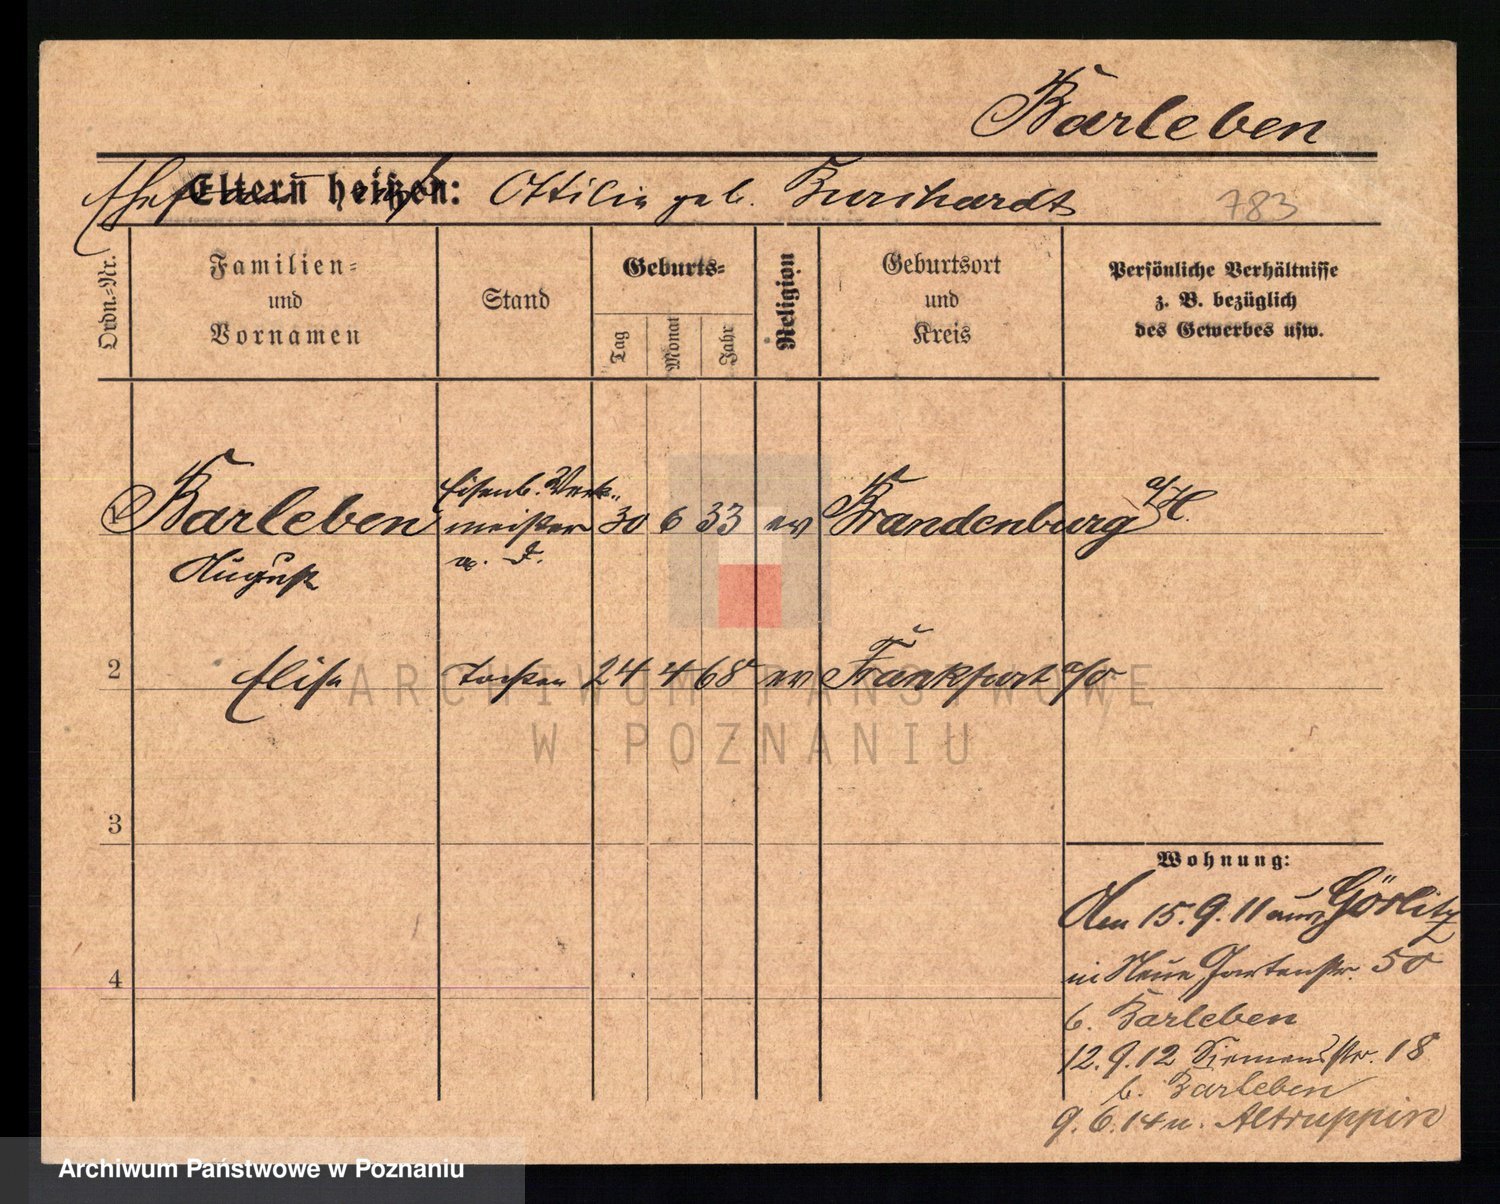 Barleben
Eltern heißen: Ottilie geb. Burchardt
783
Ordn.-Nr.
Familien-
und
Vornamen
Stand
Geburts-
Tag
Monat
Jahr
Religion
Geburtsort
und
Kreis
Persönliche Verhältnisse
z. B. bezüglich
des Gewerbes usw.
1 Barleben
August
Eisenb. Werk-
meister
a. D.
30 6 33 ev Brandenburg a/H.
2 Elise Tochter 24 4 68 ev Frankfurt a/O
ARCHIWUM PAŃSTWOWE
W POZNANIU
3
4
Wohnung:
Am 15.9.11 aus Görlitz
in Neue Gartenstr. 50
b. Barleben
12.9.12 Siemensstr. 18
b. Barleben
9.6.14 n. Altruppin
Archiwum Państwowe w Poznaniu